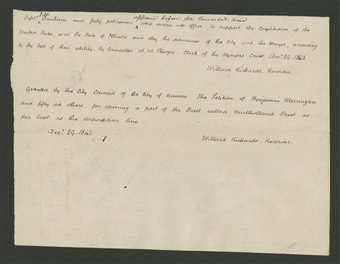 appeared before the Council and
Capt. Dunham and forty policemen were sworn into office to support the Constitution of the
United States, and the State of Illinois and obey the ordinances of the City and the Mayor, according
to the best of their ability, by Counsellor W. W. Phelps. Clerk of the Mayors Court. Dec. 29, 1843
Willard Richards, Recorder.
Granted by the City Council of the City of Nauvoo. The Petition of Benjamin Warrington
and fifty six others, for opening a part of the Street called Mulholland Street as
far East as the corporation line.
Dec. 29. 1843.
Willard Richards. Recorder